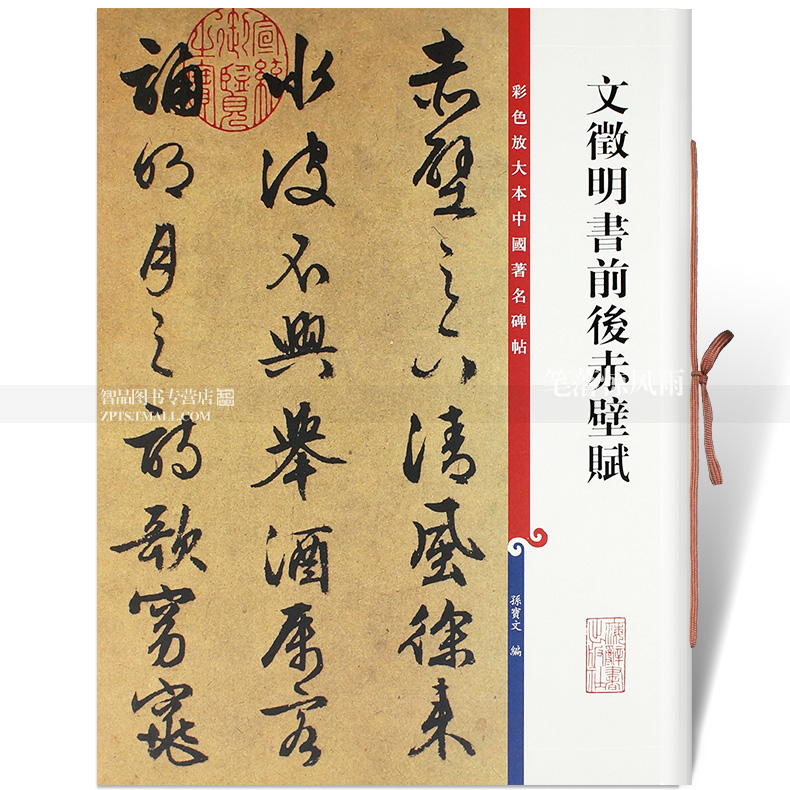 文徵明書前後赤壁賦
彩色放大本中國著名碑帖
孫寶文 編
赤壁之下清風徐來
水波不興舉酒属客
誦明月之詩歌窈窕
宣統御覽之寶
智品图书专营店
ZPTS.TMALL.COM
笔落 风雨